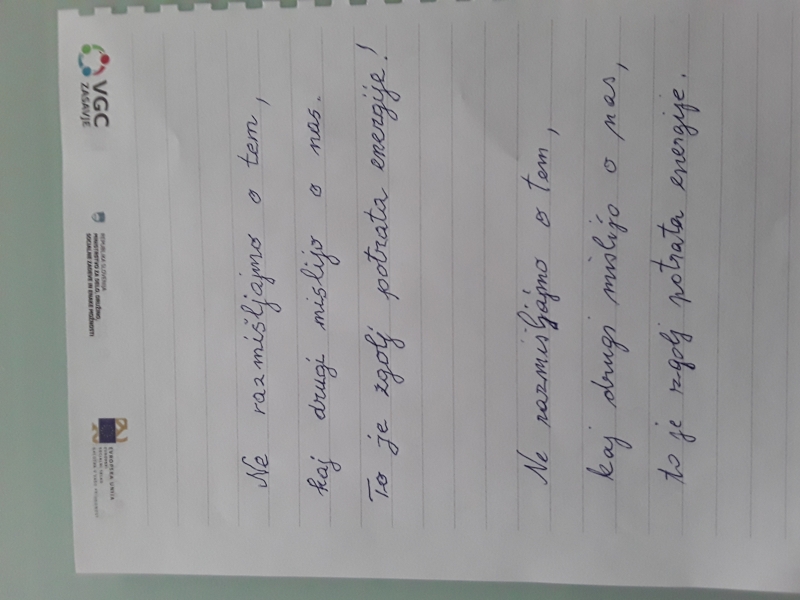 VGC
ZASAVJE
REPUBLIKA SLOVENIJA
MINISTRSTVO ZA DELO, DRUŽINO,
SOCIALNE ZADEVE IN ENAKE MOŽNOSTI
EVROPSKA UNIJA
Ne razmišljajmo o tem,
kaj drugi mislijo o nas.
To je zgolj potrata energije!
Ne razmišljajmo o tem,
kaj drugi mislijo o nas,
to je zgolj potrata energije.